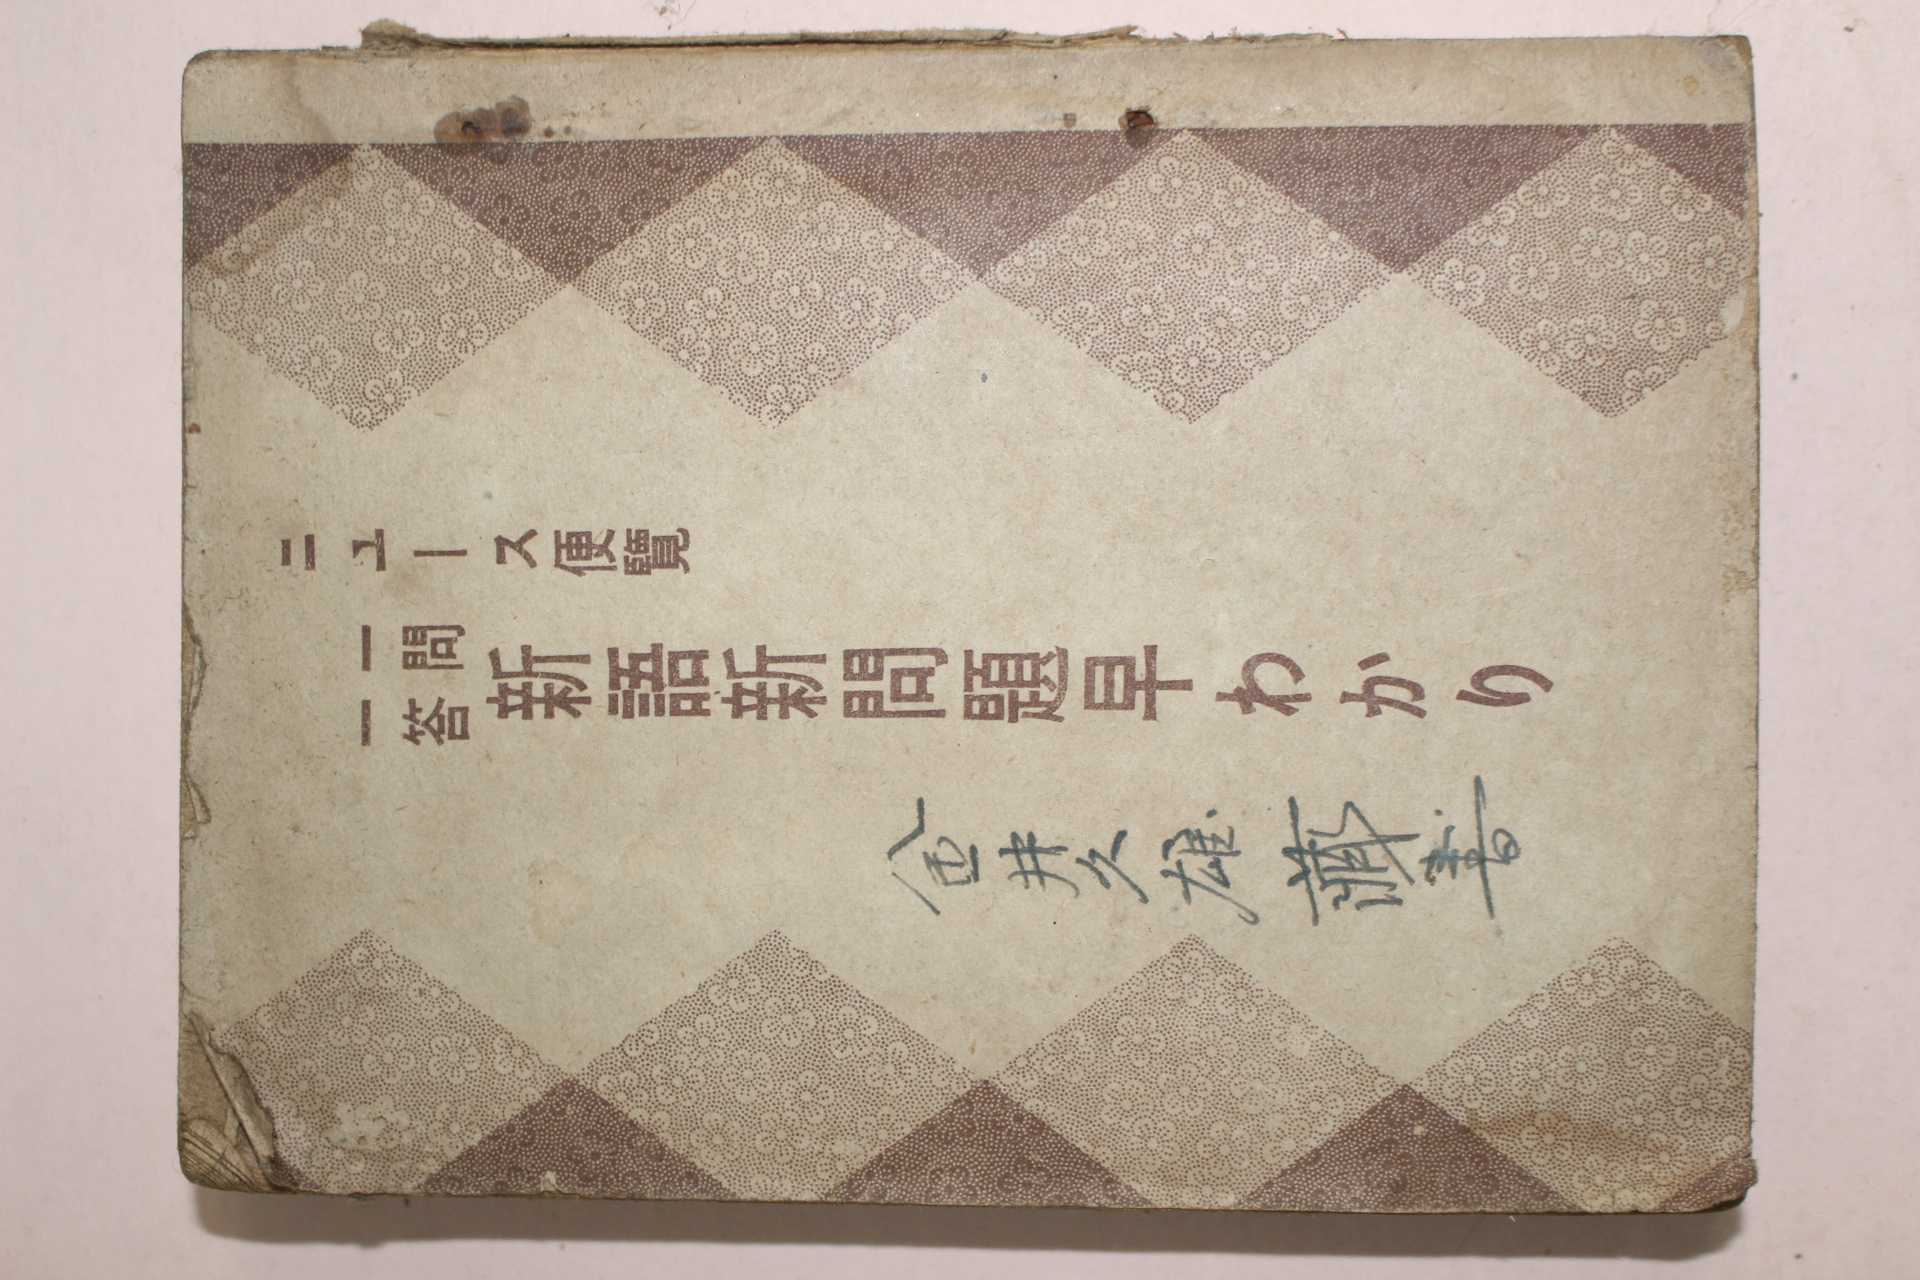 ニュース便覽
一問一答 新語新問題早わかり
金井久雄藏書